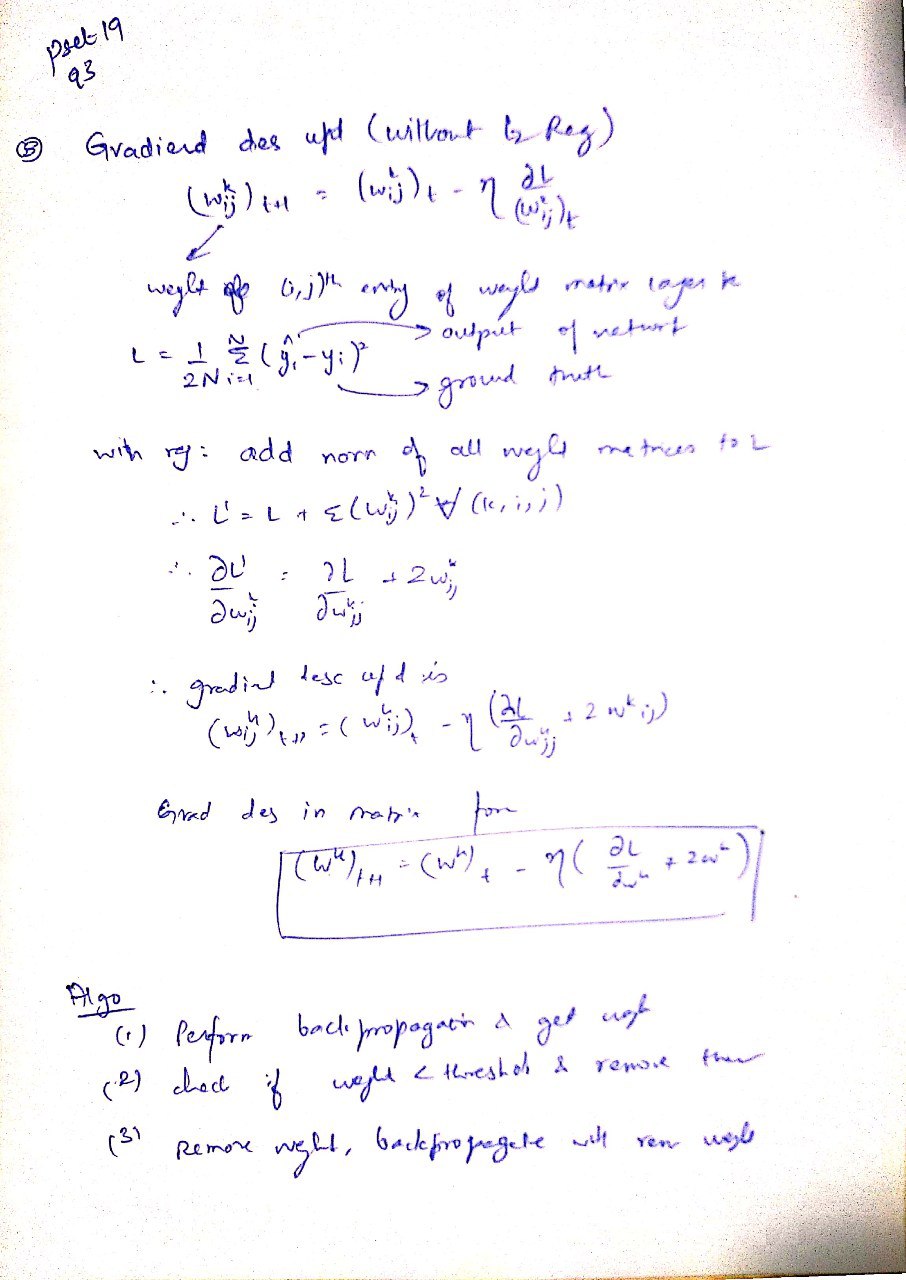 Pset 19
q3
(B) Gradiend des upd (without l2 Reg)
(w^k_ij)_t+1 = (w^k_ij)_t - η ∂L / (w^k_ij)_t
weght of (i,j)th entry of weight matrix layer k
L = 1/2N Σ^N_i=1 (ŷ_i - y_i)²
→ output of networt
→ ground truth
with reg: add norm of all weght matrices to L
∴ L' = L + Σ(w^k_ij)² ∀ (k,i,j)
∴ ∂L'/∂w^k_ij = ∂L/∂w^k_ij + 2w^k_ij
∴ gradient desc upd is
(w^k_ij)_t+1 = (w^k_ij)_t - η (∂L/∂w^k_ij + 2 w^k_ij)
Grad des in matrix form
(W^k)_t+1 = (W^k)_t - η ( ∂L/∂w^k + 2w^k )
Algo
(1) Perform back propagation & get
(2) check if weght < threshol & remove them
(3) Remove weght, backpropagate with new